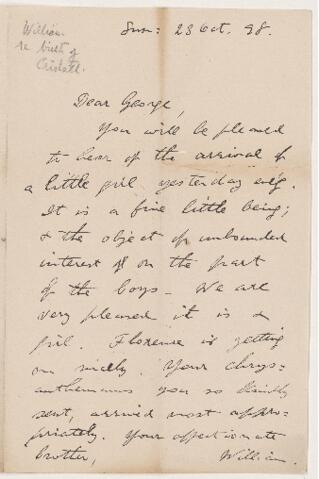 William
re birth of
Cristall.
Sun: 23 Oct. 98.
Dear George,
You will be pleased
to hear of the arrival of
a little girl yesterday ev'g.
It is a fine little being;
& the object of unbounded
interest on the part
of the boys. We are
very pleased it is a
girl. Florence is getting
on nicely. Your chrys=
anthemums you so kindly
sent, arrived most appro=
priately. Your affectionate
brother, William.